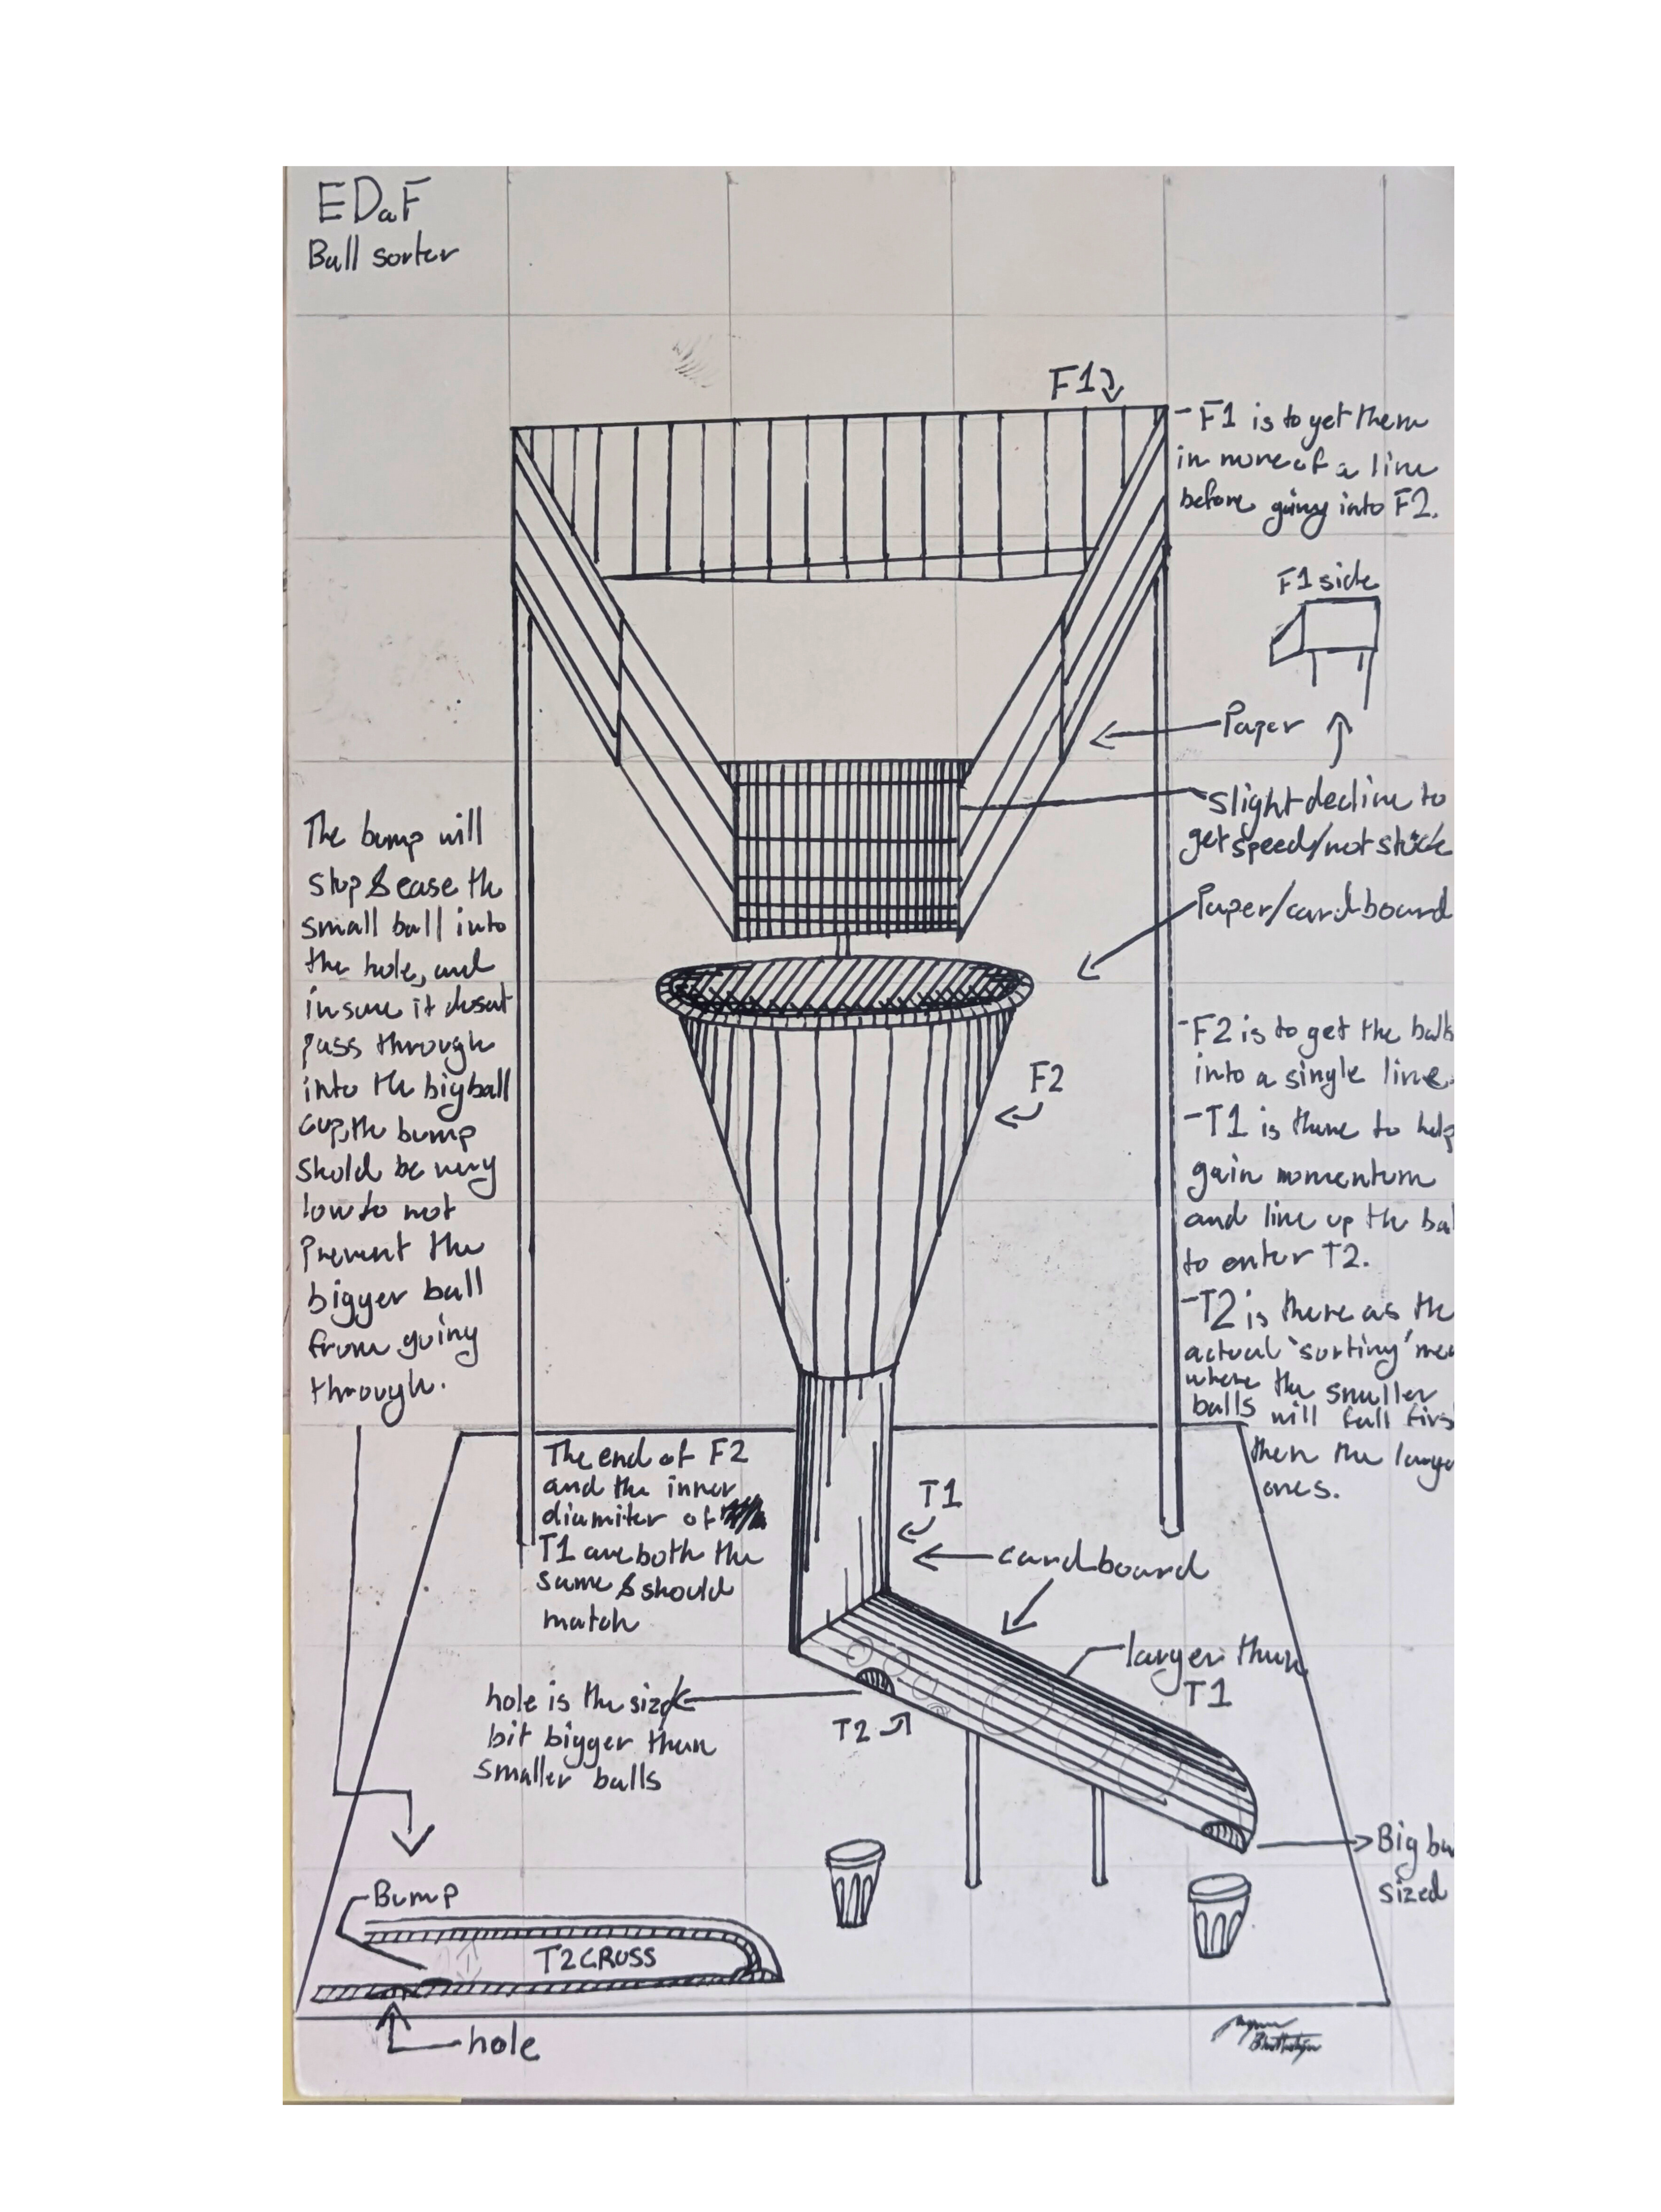 EDaF
Ball sorter
F1
- F1 is to yet them
in more of a line
before going into F2.
F1 side
Paper
slight decline to
get speed/not stuck
Paper/cardboard
The bump will
stop & ease the
small ball into
the hole, and
insure it dosent
pass through
into the big ball
cup, the bump
shold be very
low to not
prevent the
bigger ball
from going
through.
F2
- F2 is to get the balls
into a single line.
- T1 is there to help
gain momentum
and line up the ba
to enter T2.
- T2 is there as the
actual 'sorting' me
where the smaller
balls will fall firs
then the large
ones.
The end of F2
and the inner
diamiter of
T1 are both the
same & should
match
T1
cardboard
larger than
T1
hole is the size
bit bigger than
smaller balls
T2
Big ba
sized
Bump
T2 CROSS
hole